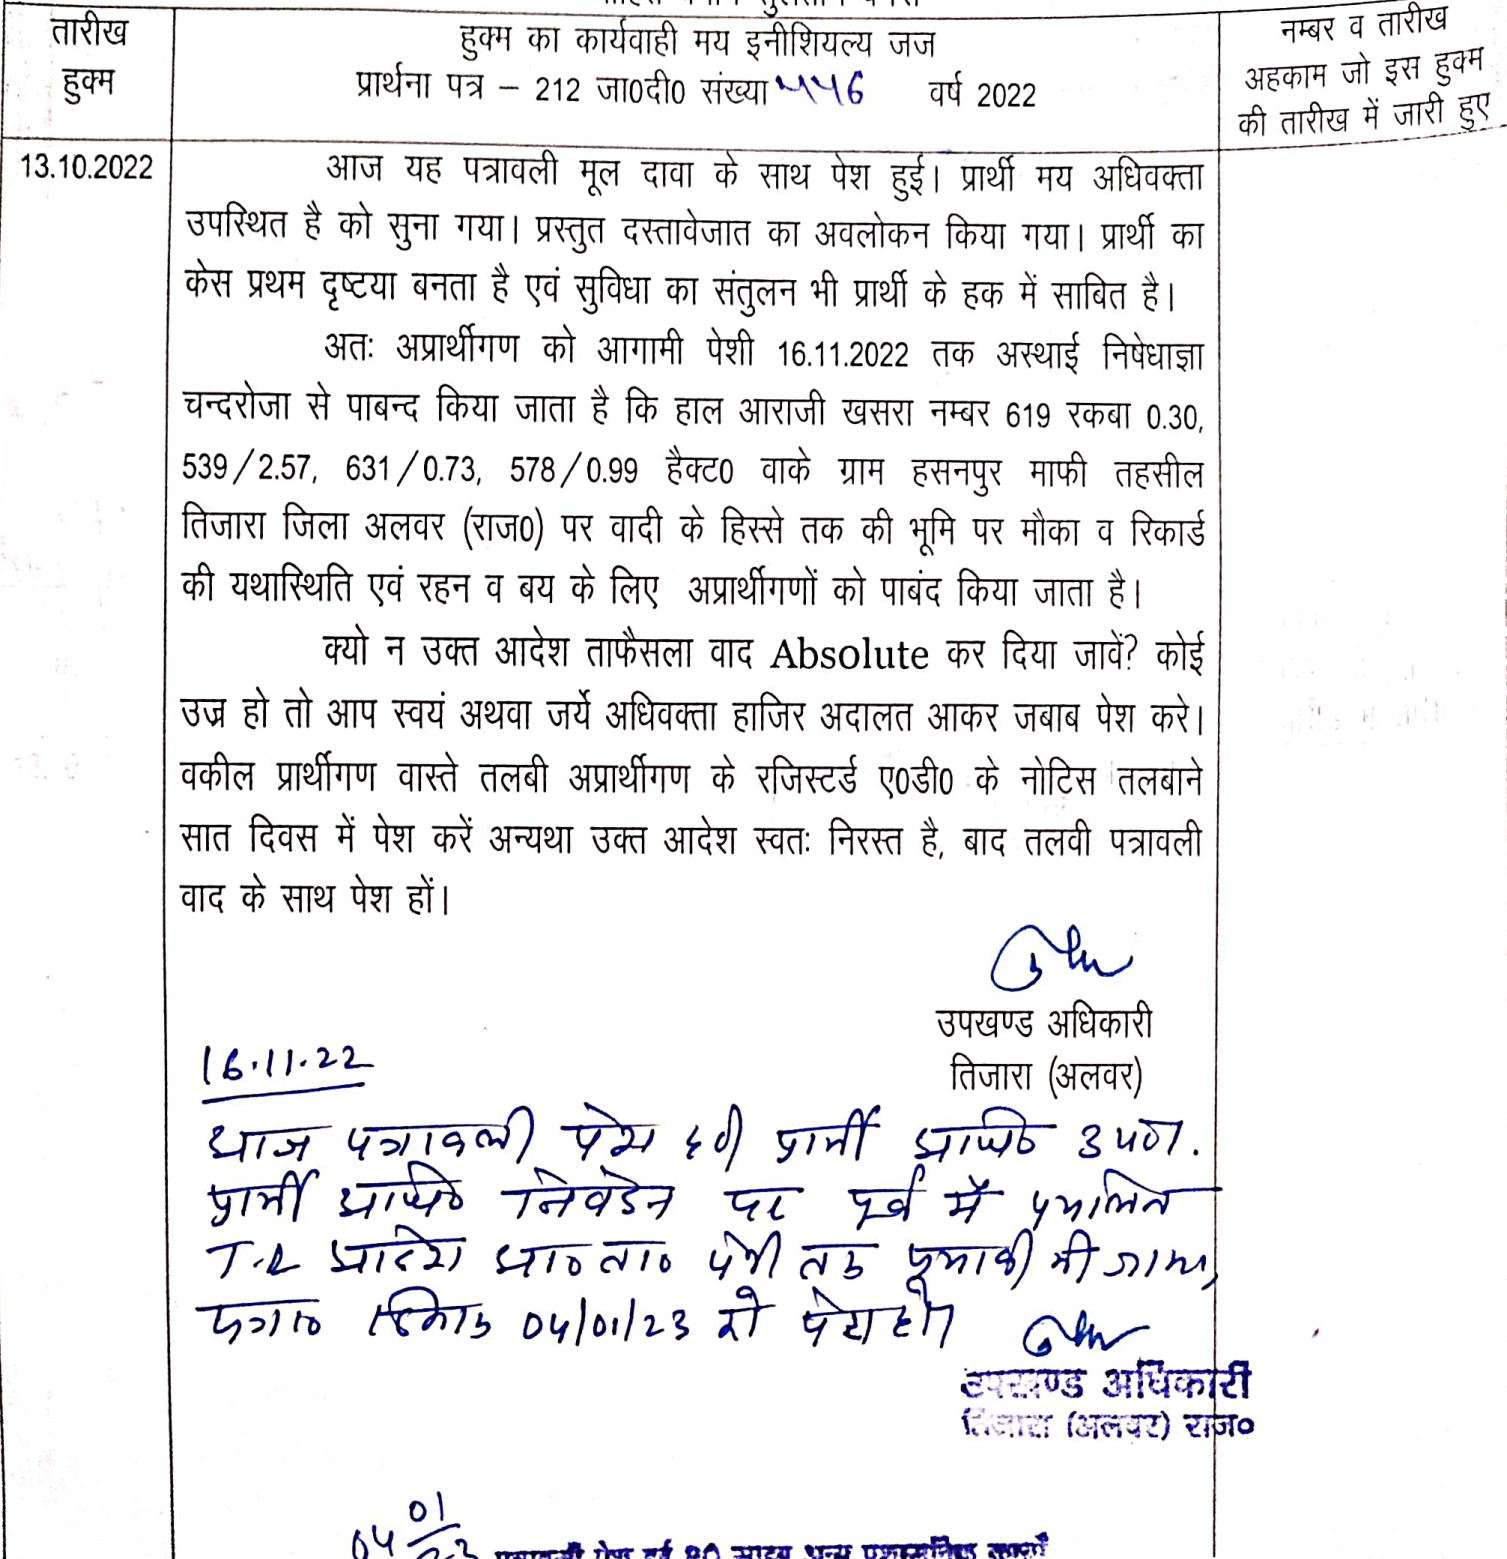 तारीख
हुक्म
हुक्म का कार्यवाही मय इनीशियल्य जज
प्रार्थना पत्र – 212 जा0दी0 संख्या 446 वर्ष 2022
नम्बर व तारीख
अहकाम जो इस हुक्म
की तारीख में जारी हुए
13.10.2022
आज यह पत्रावली मूल दावा के साथ पेश हुई। प्रार्थी मय अधिवक्ता
उपस्थित है को सुना गया। प्रस्तुत दस्तावेजात का अवलोकन किया गया। प्रार्थी का
केस प्रथम दृष्टया बनता है एवं सुविधा का संतुलन भी प्रार्थी के हक में साबित है।
अतः अप्रार्थीगण को आगामी पेशी 16.11.2022 तक अस्थाई निषेधाज्ञा
चन्दरोजा से पाबन्द किया जाता है कि हाल आराजी खसरा नम्बर 619 रकबा 0.30,
539/2.57, 631/0.73, 578/0.99 हैक्ट0 वाके ग्राम हसनपुर माफी तहसील
तिजारा जिला अलवर (राज0) पर वादी के हिस्से तक की भूमि पर मौका व रिकार्ड
की यथास्थिति एवं रहन व बय के लिए अप्रार्थीगणों को पाबंद किया जाता है।
क्यो न उक्त आदेश ताफैसला वाद Absolute कर दिया जावें? कोई
उज्र हो तो आप स्वयं अथवा जर्ये अधिवक्ता हाजिर अदालत आकर जबाब पेश करे।
वकील प्रार्थीगण वास्ते तलबी अप्रार्थीगण के रजिस्टर्ड ए0डी0 के नोटिस तलबाने
सात दिवस में पेश करें अन्यथा उक्त आदेश स्वतः निरस्त है, बाद तलवी पत्रावली
वाद के साथ पेश हों।
उपखण्ड अधिकारी
तिजारा (अलवर)
16.11.22
आज पत्रावली पेश हुयी प्रार्थी
प्रार्थी निवेदन पर पूर्व में
आदेश आ० ता० पेशी तक
दिनांक 04/01/23 को पेश हो।
उपखण्ड अधिकारी
तिजारा (अलवर) राज०
04/01